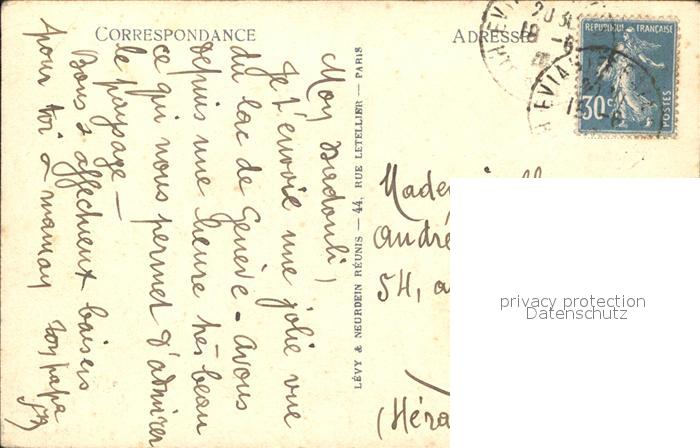 CORRESPONDANCE
ADRESSE
Mon
Je t'envoie une jolie vue
du lac de Genève - avons
depuis une heure très beau
ce qui nous permet d'admirer
le paysage —
Bons & affectueux baisers
pour toi & maman
ton papa
LÉVY & NEURDEIN RÉUNIS — 44, RUE LETELLIER — PARIS
REPUBLIQUE FRANÇAISE
30c
POSTES
EVIAN
André
54,
(Héra
privacy protection
Datenschutz